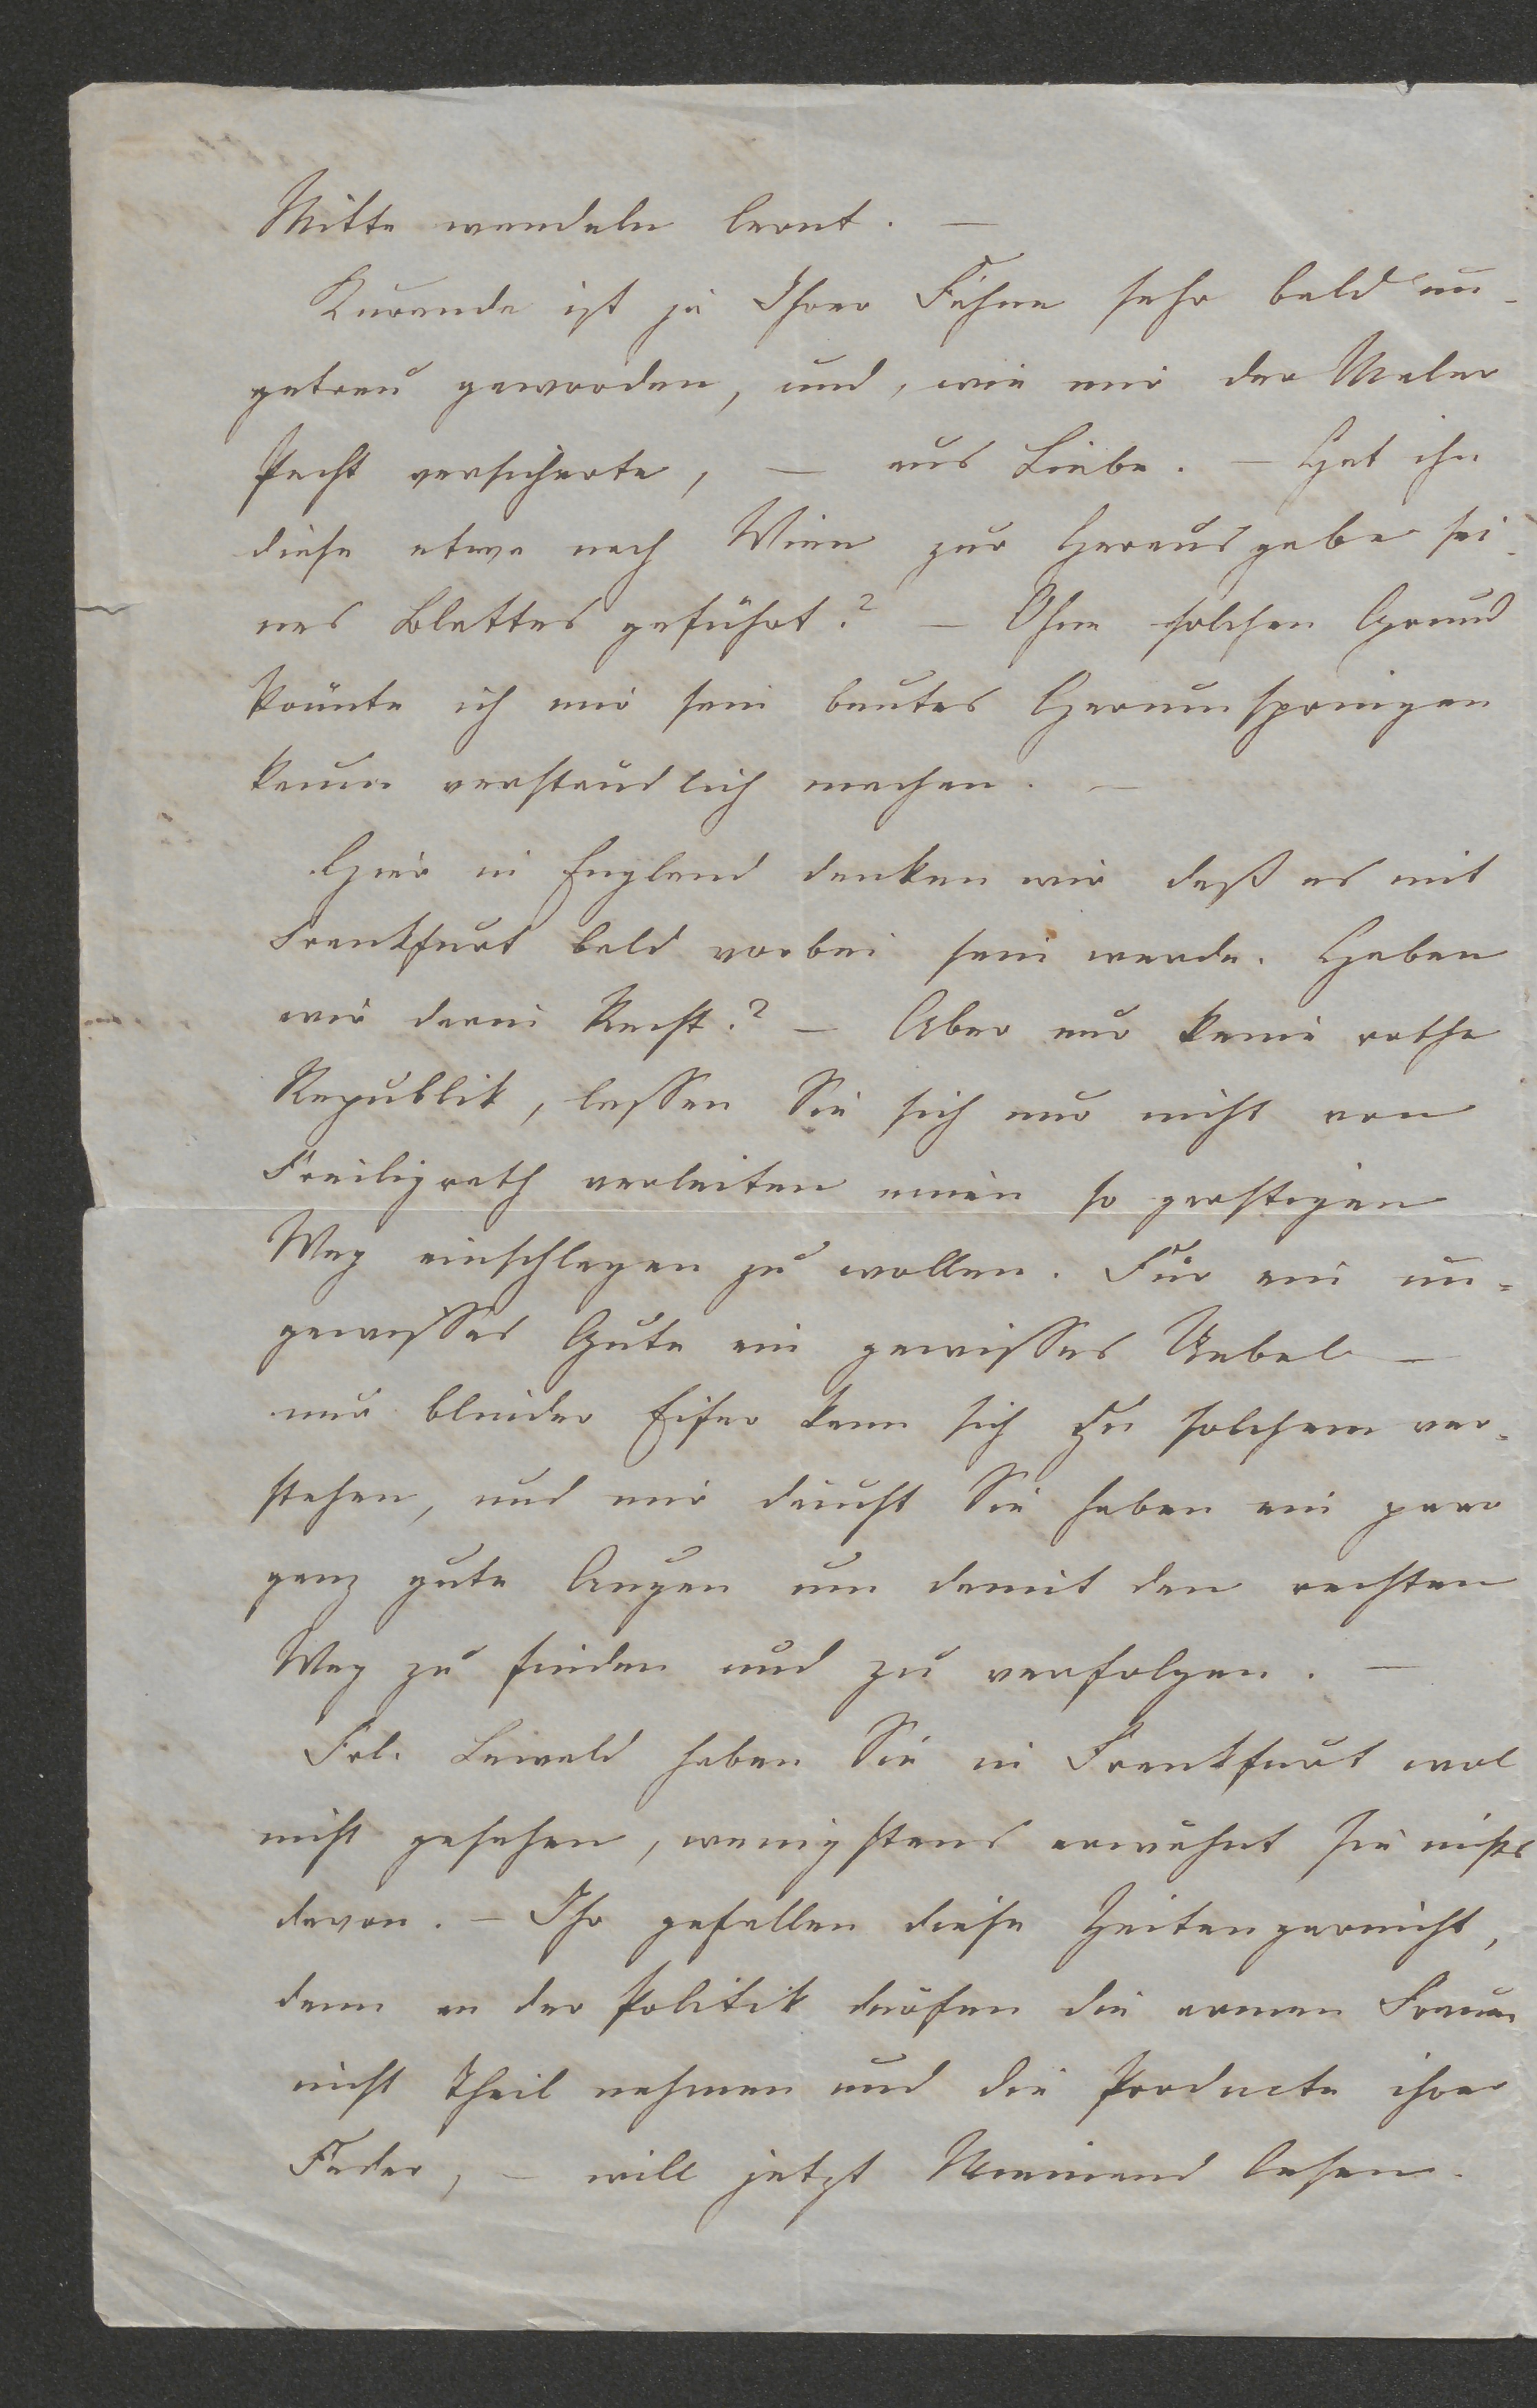 Mitte wandeln lernt. —
Kuranda ist ja Ihrer Fahne sehr bald un-
getreu geworden, und, wie mir der Maler
Pecht versicherte, — aus Liebe. — Hat ihn
diese etwa nach Wien zur Herausgabe sei-
nes Blattes geführt? — Ohne solchen Grund
könnte ich mir sein buntes Herumspringen
kaum verständlich machen. —
Hier in England denken wir daß es mit
Frankfurt bald vorbei sein werde. Haben
wir darin Recht? — Aber nur keine rothe
Republik, lassen Sie sich nur nicht von
Freiligrath verleiten einen so garstigen
Weg einschlagen zu wollen. Für ein un-
gewisses Gute ein gewisses Uebel —
nur blinder Eifer kann sich zu solchem ver-
stehen, und mir däucht Sie haben ein paar
ganz gute Augen um damit den rechten
Weg zu finden und zu verfolgen. —
Frl. Lewald haben Sie in Frankfurt wol
nicht gesehen, wenigstens erwähnt sie nichts
davon. — Ihr gefallen diese Zeiten garnicht,
denn an der Politik dürfen die armen Frauen
nicht Theil nehmen und die Producte ihrer
Feder, — will jetzt Niemand lesen.